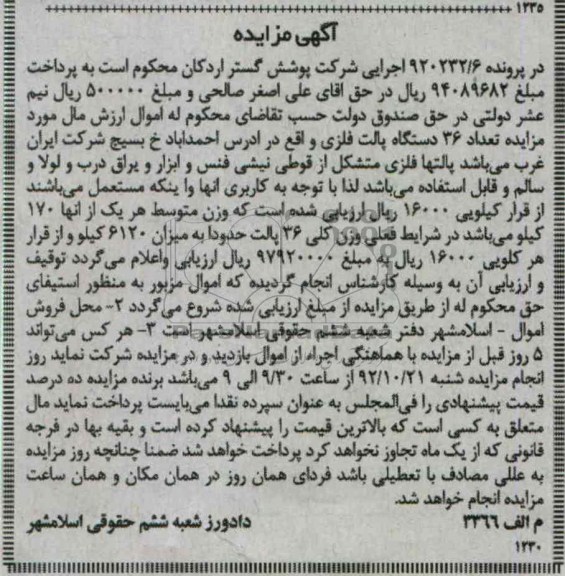 ۱۳۳۵
آگهی مزایده
در پرونده ۹۲۰۲۳۲/۶ اجرایی شرکت پوشش گستر اردکان محکوم است به پرداخت
مبلغ ۹۴۰۸۹۶۸۲ ریال در حق اقای علی اصغر صالحی و مبلغ ۵۰۰۰۰۰ ریال نیم
عشر دولتی در حق صندوق دولت حسب تقاضای محکوم له اموال ارزش مال مورد
مزایده تعداد ۳۶ دستگاه پالت فلزی و اقع در ادرس احمداباد خ بسیج شرکت ایران
غرب می‌باشد پالتها فلزی متشکل از قوطی نبشی فنس و ابزار و یراق درب و لولا و
سالم و قابل استفاده می‌باشد لذا با توجه به کاربری انها وا ینکه مستعمل می‌باشند
از قرار کیلویی ۱۶۰۰۰ ریال ارزیابی شده است که وزن متوسط هر یک از انها ۱۷۰
کیلو می‌باشد در شرایط فعلی وزن کلی ۳۶ پالت حدودا به میزان ۶۱۲۰ کیلو و از قرار
هر کلویی ۱۶۰۰۰ ریال به مبلغ ۹۷۹۲۰۰۰۰ ریال ارزیابی واعلام می‌گردد توقیف
و ارزیابی آن به وسیله کارشناس انجام گردیده که اموال مزبور به منظور استیفای
حق محکوم له از طریق مزایده از مبلغ ارزیابی شده شروع می‌گردد ۲- محل فروش
اموال - اسلامشهر دفتر شعبه ششم حقوقی اسلامشهر است ۳- هر کس می‌تواند
۵ روز قبل از مزایده با هماهنگی اجراء از اموال بازدید و در مزایده شرکت نماید روز
انجام مزایده شنبه ۹۲/۱۰/۲۱ از ساعت ۹/۳۰ الی ۹ می‌باشد برنده مزایده ده درصد
قیمت پیشنهادی را فی‌المجلس به عنوان سپرده نقدا می‌بایست پرداخت نماید مال
متعلق به کسی است که بالاترین قیمت را پیشنهاد کرده است و بقیه بها در فرجه
قانونی که از یک ماه تجاوز نخواهد کرد پرداخت خواهد شد ضمنا چنانچه روز مزایده
به عللی مصادف با تعطیلی باشد فردای همان روز در همان مکان و همان ساعت
مزایده انجام خواهد شد.
م الف ۳۳۶۶ دادورز شعبه ششم حقوقی اسلامشهر
۱۲۳۰